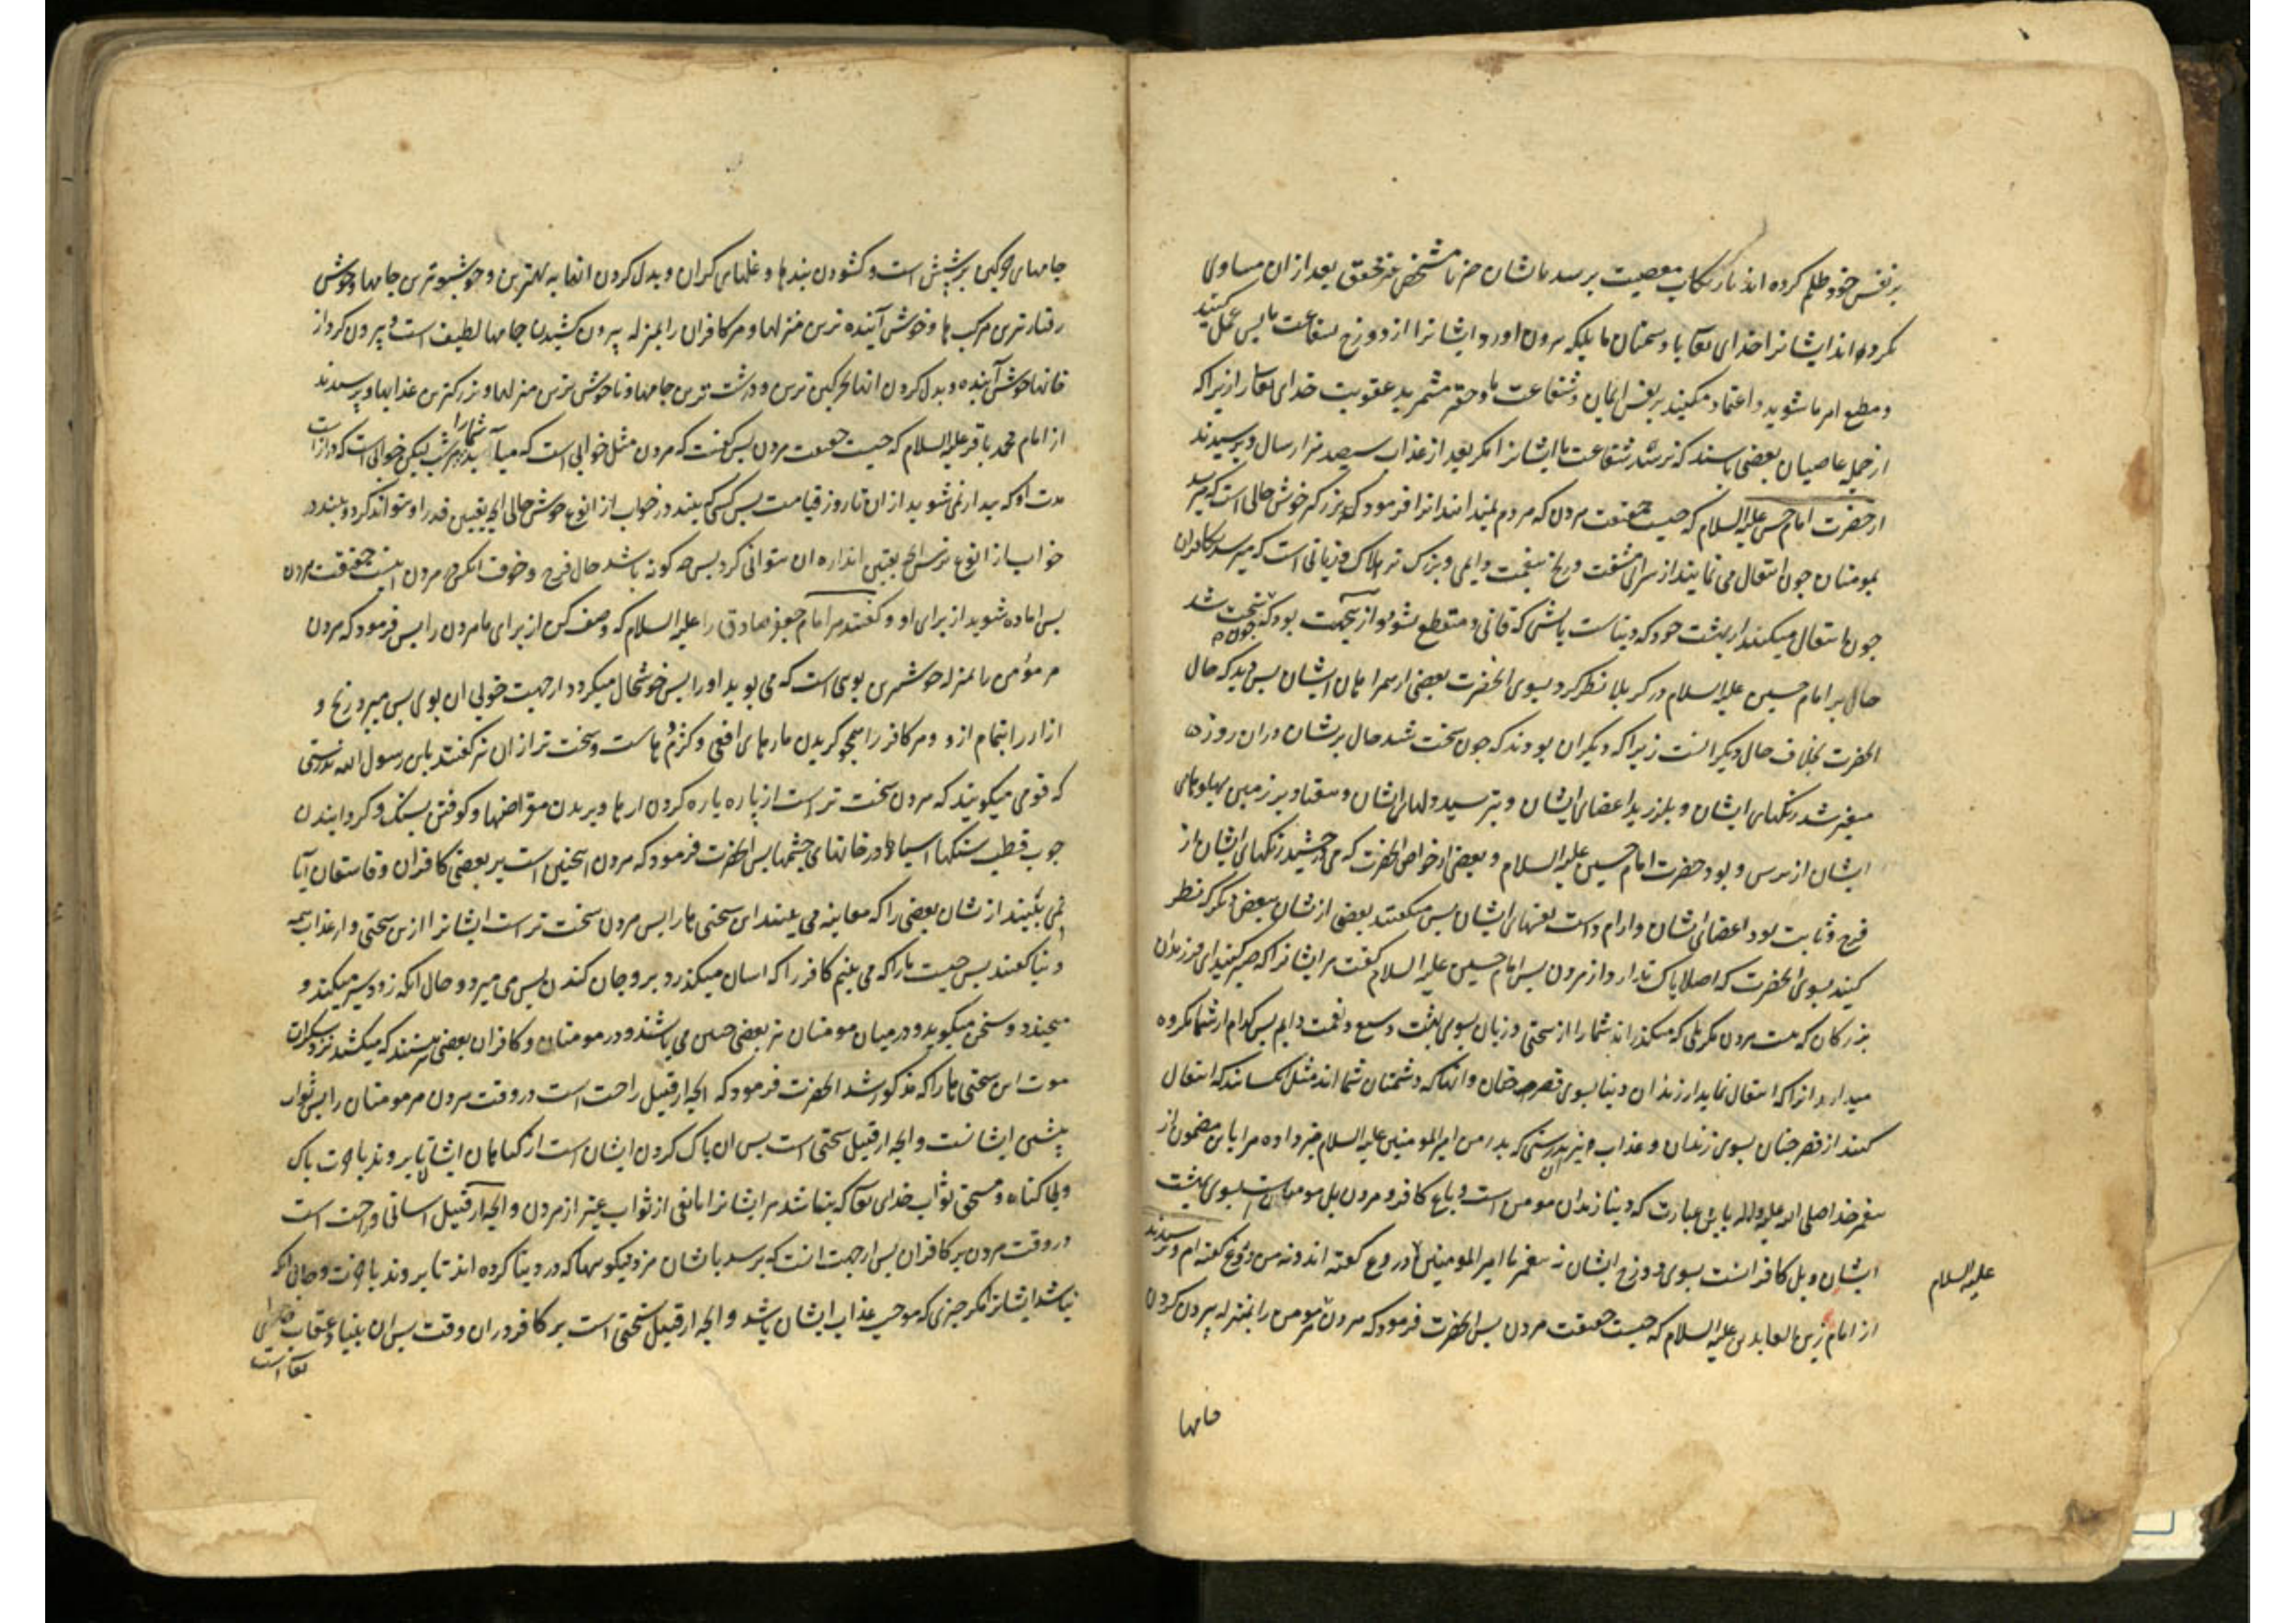 بر نفس خود ظلم کرده اند بارتکاب معصیت برسد باشان خبر نا مشخص غیر محقق بعد از ان مساوی
نکرده اند ایشانرا خدای تعا با دشمنان ما بلکه بیرون اورد ایشانرا از دوزخ بشفاعت ما پس عمل کنید
و مطیع امر ما شوید و اعتماد مکنید بر نفس ایمان و شفاعت ما و حقیر مشمرید عقوبت خدای تعا را زیرا که
از جمله عاصیان بعضی باشند که نرسد شفاعت ما ایشانرا مگر بعد از عذاب سیصد هزار سال و پرسیدند
از حضرت امام حسن علیه السلام که چیست حقیقت مردن که مردم نمیدانند انرا فرمود که بزرگتر خوش حالی است که میرسد
بمومنان چون انتقال می نمایند از سرای مشقت و رنج بنعمت دایمی و بزرگ تر هلاک و زیانی است که میرسد بکافران
چون انتقال میکنند از بهشت خود که دنیاست باتشی که فانی و منقطع نشود و از ینجهت بود که چون سخت شد
حال بر امام حسین علیه السلام در کربلا نظر کرد بسوی الحضرت بعضی از همراهان ایشان پس دید که حال
الحضرت بخلاف حال دیگرانست زیرا که دیگران بودند که چون سخت شد حال بریشان دران روز
متغیر شد رنگهای ایشان و بلرزید اعضای ایشان و بترسید دلهای ایشان و میفتاد بر زمین پهلوهای
ایشان از ترس و بود حضرت امام حسین علیه السلام و بعضی از خواص الحضرت که می درخشید رنگهای ایشان از
فرح و ثابت بود اعضای ایشان و ارام داشت نفسهای ایشان پس میگفتند بعضی ازشان ببعض دیگر که نظر
کنید بسوی الحضرت که اصلا باک ندارد از مردن پس امام حسین علیه السلام گفت مر ایشانرا که صبر کنید ای فرزندان
بزرگان که نیست مردن مگر پلی که میگذراند شما را از سختی و زیان بسوی بهشت وسیع و نعمت دایم پس کدام از شما مکروه
میدارد انرا که انتقال نماید از زندان دنیا بسوی قصر جنان و انکه دشمنان شما اند مثل کسانند که انتقال
کنند از قصر جنان بسوی زندان و عذاب و نیز بدرستی که پدر من امیر المومنین علیه السلام خبر داده مرا باین مضمون از
پیغمبر خدا صلی الله علیه واله باین عبارت که دنیا زندان مومن است و باغ کافر و مردن پل مومنان است بسوی بهشت
ایشان و پل کافرانست بسوی دوزخ ایشان نه پیغمبر با امیر المومنین دروغ گفته اند و نه من دروغ گفته ام و پرسیدند
علیه السلام
از امام زین العابدین علیه السلام که چیست حقیقت مردن پس الحضرت فرمود که مردن مر مومن را بمنزله بیرون کردن
جامها
جامهای چرکین پرشپش است و گشودن بندها و غلهای گران و بدل کردن انها به بهترین و خوشبوترین جامها و خوش
رفتارترین مرکب ها و خوش آینده ترین منزلها و مر کافران را بمنزله بیرون کشیدن جامها لطیف است و بیرون کردن از
خانها خوش آینده و بدل کردن انها بچرکین ترین و درشت ترین جامها و ناخوش ترین منزلها و بزرگترین عذابها و پرسیدند
از امام محمد باقر علیه السلام که چیست حقیقت مردن پس گفت که مردن مثل خوابی است که میآید شما را هر شب لیکن خوابی است که دراز است
مدت او که بیدار نمی شوید از ان تا روز قیامت پس کسی که بیند در خواب از انوع خوش حالی انچه بقیتین قدر او نتواند کرد و بیند در
خواب از انوع ترس انچه بقیتین اندازه ان نتوانی کرد پس چه گونه باشد حال فرح و خوف انکس در مردن اینست حقیقت مردن
پس اماده شوید از برای او و گفتند مر امام جعفر صادق را علیه السلام که وصف کن از برای ما مردن را پس فرمود که مردن
مر مؤمن را بمنزله خوشترین بوی است که می بوید او را پس خوشحال میگردد از جهت خوبی ان بوی پس میبرد رنج و
ازار را بتمام ازو و مر کافر را همچو گزیدن مارهای افعی و کژدم ها ست و سخت تر از ان نیز گفتند یابن رسول الله بدرستی
که قومی میگویند که مردن سخت تر است از پاره پاره کردن ارها و بریدن مقراضها و کوفتن بسنگ و گردانیدن
چوب قطب سنگها اسیاها در خانهای چشمها پس الحضرت فرمود که مردن اینچنین است بر بعضی کافران و فاسقان آیا
نمی بینید ازشان بعضی را که معاینه می بینند این سختی ها را پس مردن سخت تر است ایشانرا ازین سختی و از عذاب همه
دنیا گفتند پس چیست ما را که می بینیم کافر را که اسان میگذرد برو جان کندن پس می میرد و حال انکه زود سیر میکند و
میخندد و سخن میگوید و در میان مومنان نیز بعضی چنین می باشند و در مومنان و کافران بعضی هستند که میکشند نزد سکرات
موت این سختی ها را که مذکور شد الحضرت فرمود که انچه از قبیل راحت است در وقت مردن مر مومنان را پس ثواب
پیشین ایشانست و انچه از قبیل سختی است پس ان پاک کردن ایشان است از گناهان ایشان تا بروند باخرت پاک
و بی گناه و مستحق ثواب خدای تعا که نباشد مر ایشانرا مانعی از ثواب غیر از مردن و انچه از قبیل اسانی و راحت است
در وقت مردن بر کافران پس از جهت انست که برسد باشان مزد نیکوییها که در دنیا کرده اند تا بروند باخرت و حال انکه
نباشد ایشانرا مگر چیزی که موجب عذاب ایشان باشد و انچه از قبیل سختی است بر کافر دران وقت پس ان بنیاد عقاب خدای
تعا است